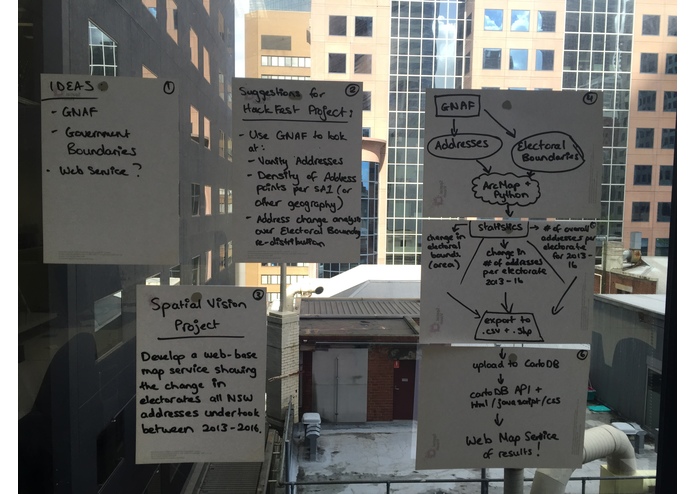 IDEAS
1
- GNAF
- Government
Boundaries
- Web Service?
2
Suggestions for
HackFest Project:
- Use GNAF to look
at:
- Vanity Addresses
- Density of Address
points per SA1 (or
other geography)
- Address change analysis
over Electoral Boundary
re-distribution
3
Spatial Vision
Project
Develop a web-base
map service showing
the change in
electorates all NSW
addresses undertook
between 2013-2016.
4
GNAF
Addresses
Electoral
Boundaries
ArcMap +
Python
Statistics
change in
electoral
bounds
(area)
change in
# of addresses
per electorate
2013-16
# of overall
addresses per
electorate
for 2013-
16
export to
.csv + .shp
6
upload to CartoDB
cartoDB API +
html/javascript/css
Web Map Service
of results!